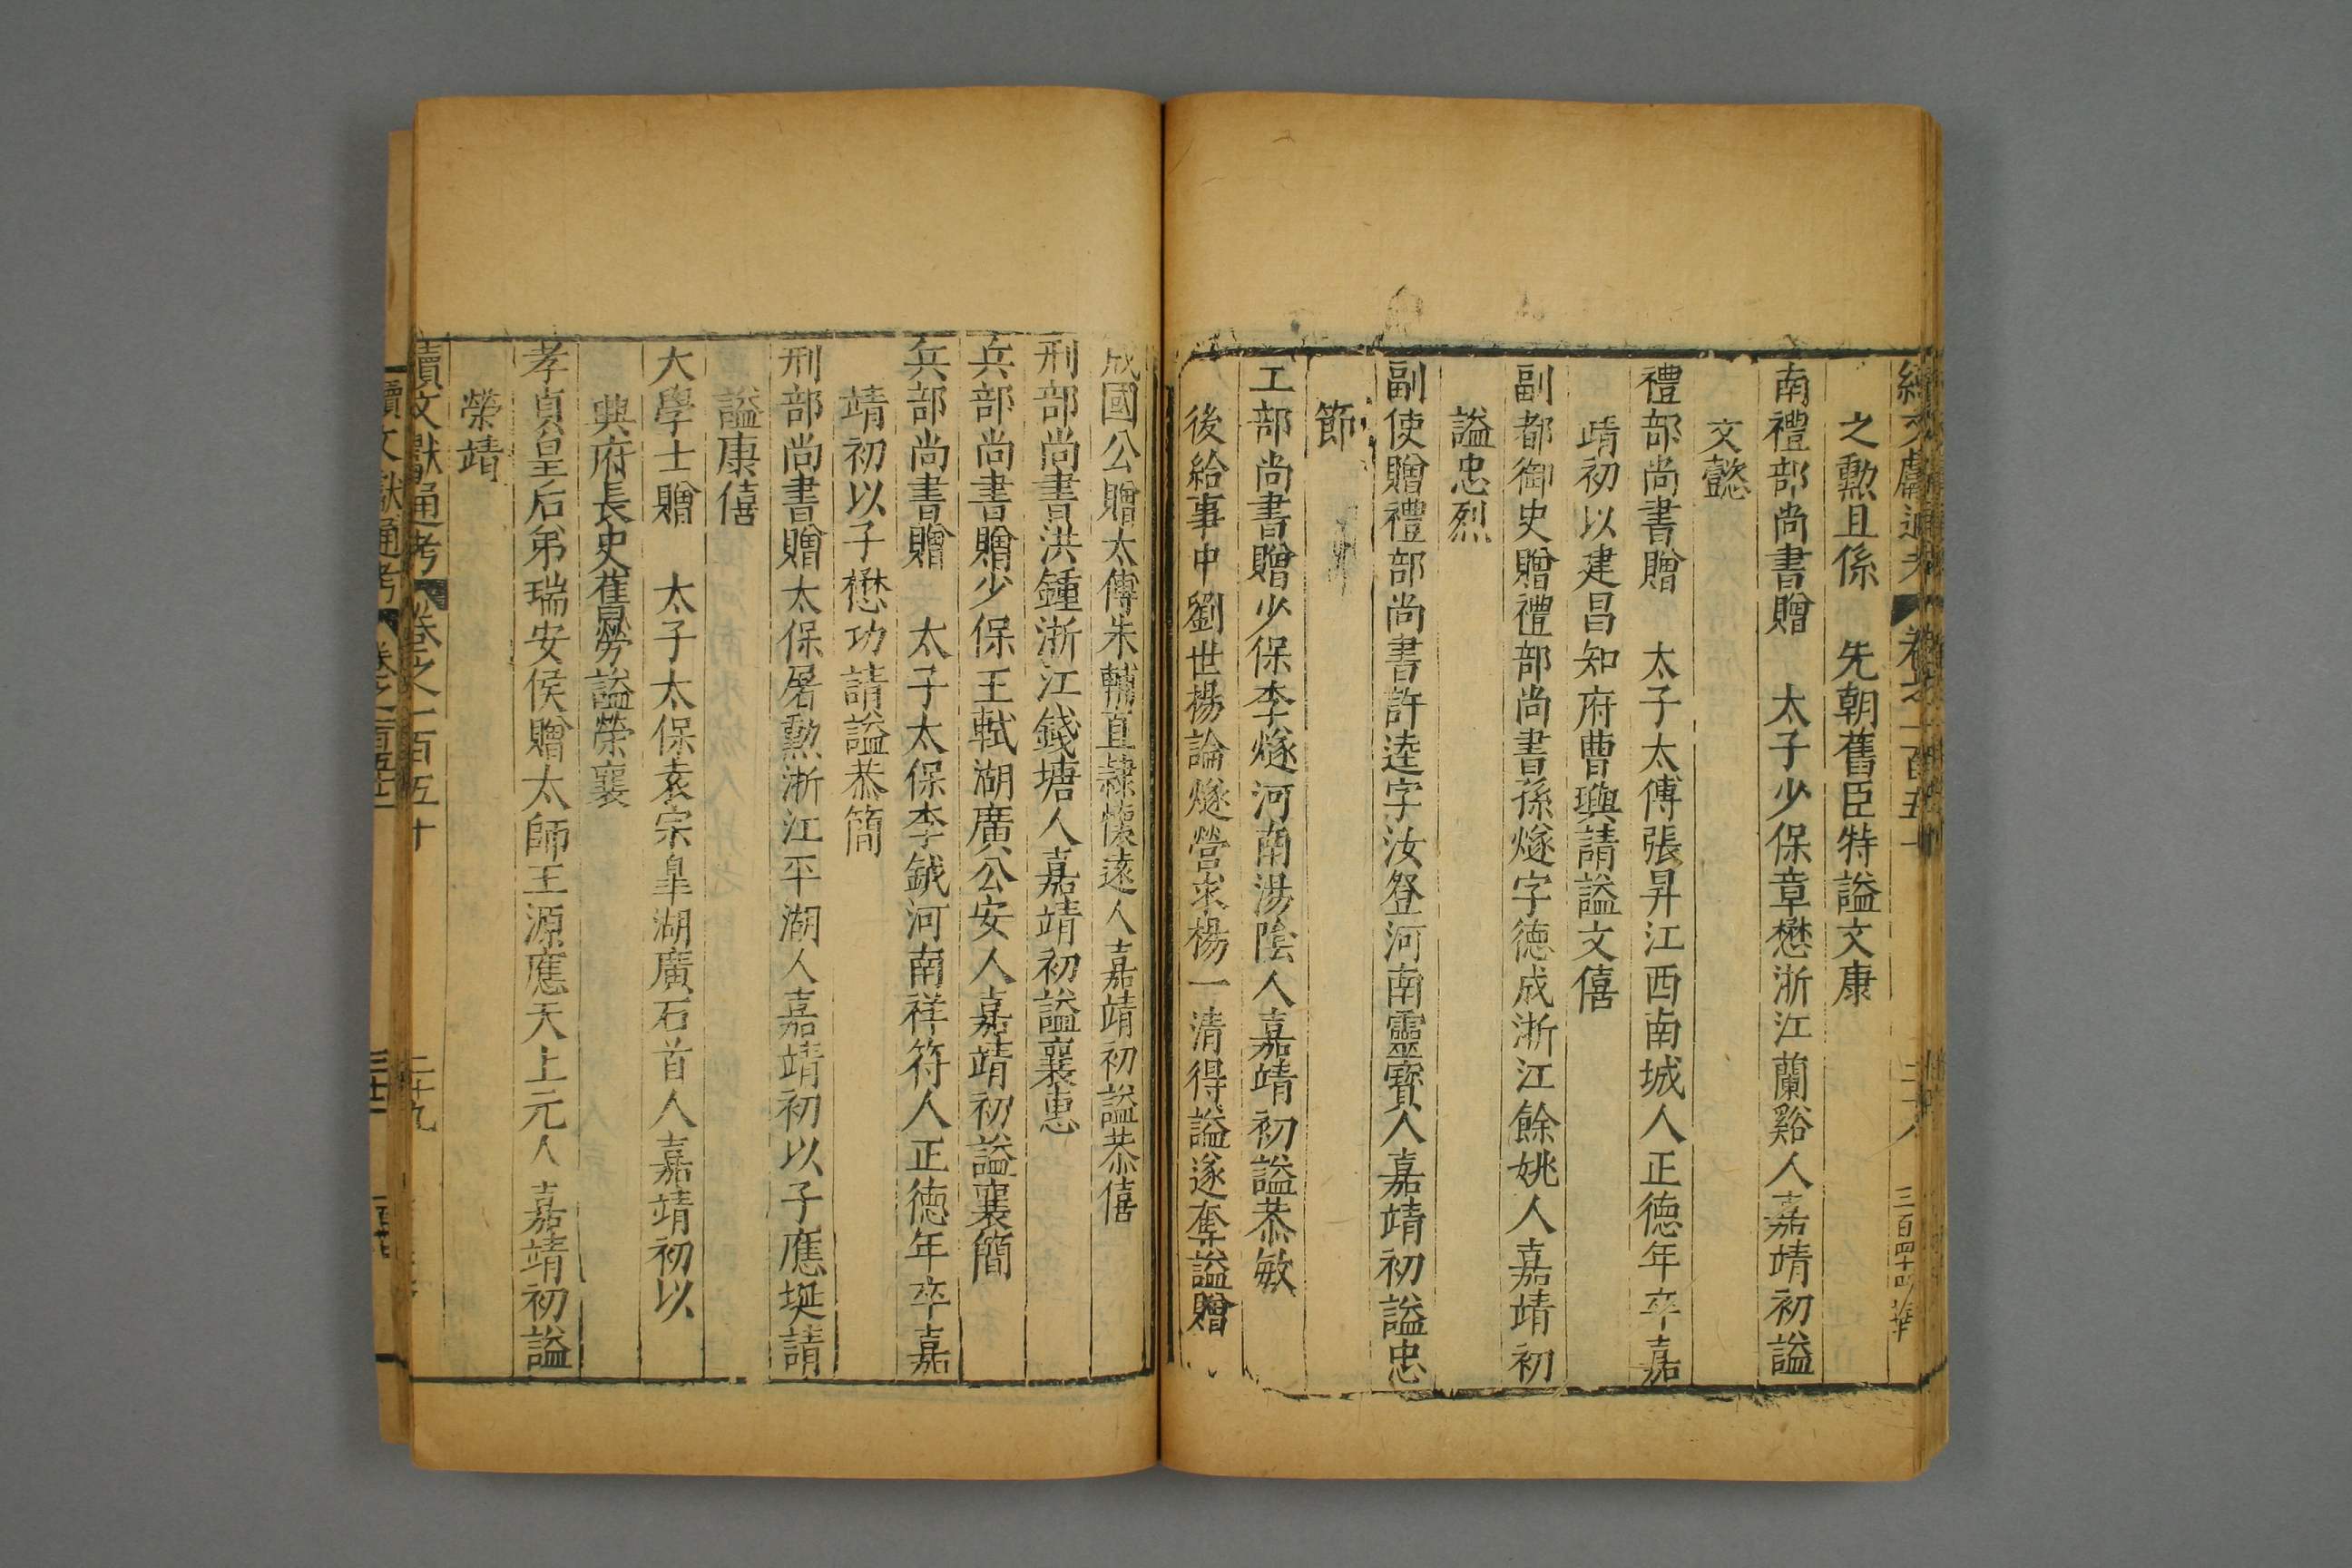 續文獻通考 卷之一百五十 二十八 三百四十四 華
之勲且係 先朝舊臣特謚文康
南禮部尚書贈 太子少保章懋浙江蘭谿人嘉靖初謚
文懿
禮部尚書贈 太子太傅張昇江西南城人正德年卒嘉
靖初以建昌知府曹璵請謚文僖
副都御史贈禮部尚書孫燧字德成浙江餘姚人嘉靖初
謚忠烈
副使贈禮部尚書許逵字汝登河南靈寳人嘉靖初謚忠
節
工部尚書贈少保李燧河南湯陰人嘉靖初謚恭敏
後給事中劉世楊論燧營求楊一清得謚遂奪謚贈
成國公贈太傅朱輔直隷懷遠人嘉靖初謚恭僖
刑部尚書洪鍾浙江錢塘人嘉靖初謚襄惠
兵部尚書贈少保王軾湖廣公安人嘉靖初謚襄簡
兵部尚書贈 太子太保李鉞河南祥符人正德年卒嘉
靖初以子懋功請謚恭簡
刑部尚書贈太保屠勲浙江平湖人嘉靖初以子應埏請
謚康僖
大學士贈 太子太保袁宗皐湖廣石首人嘉靖初以
興府長史舊勞謚榮襄
孝貞皇后弟瑞安侯贈太師王源應天上元人嘉靖初謚
榮靖
續文獻通考 卷之一百五十 二十九
續文獻通考